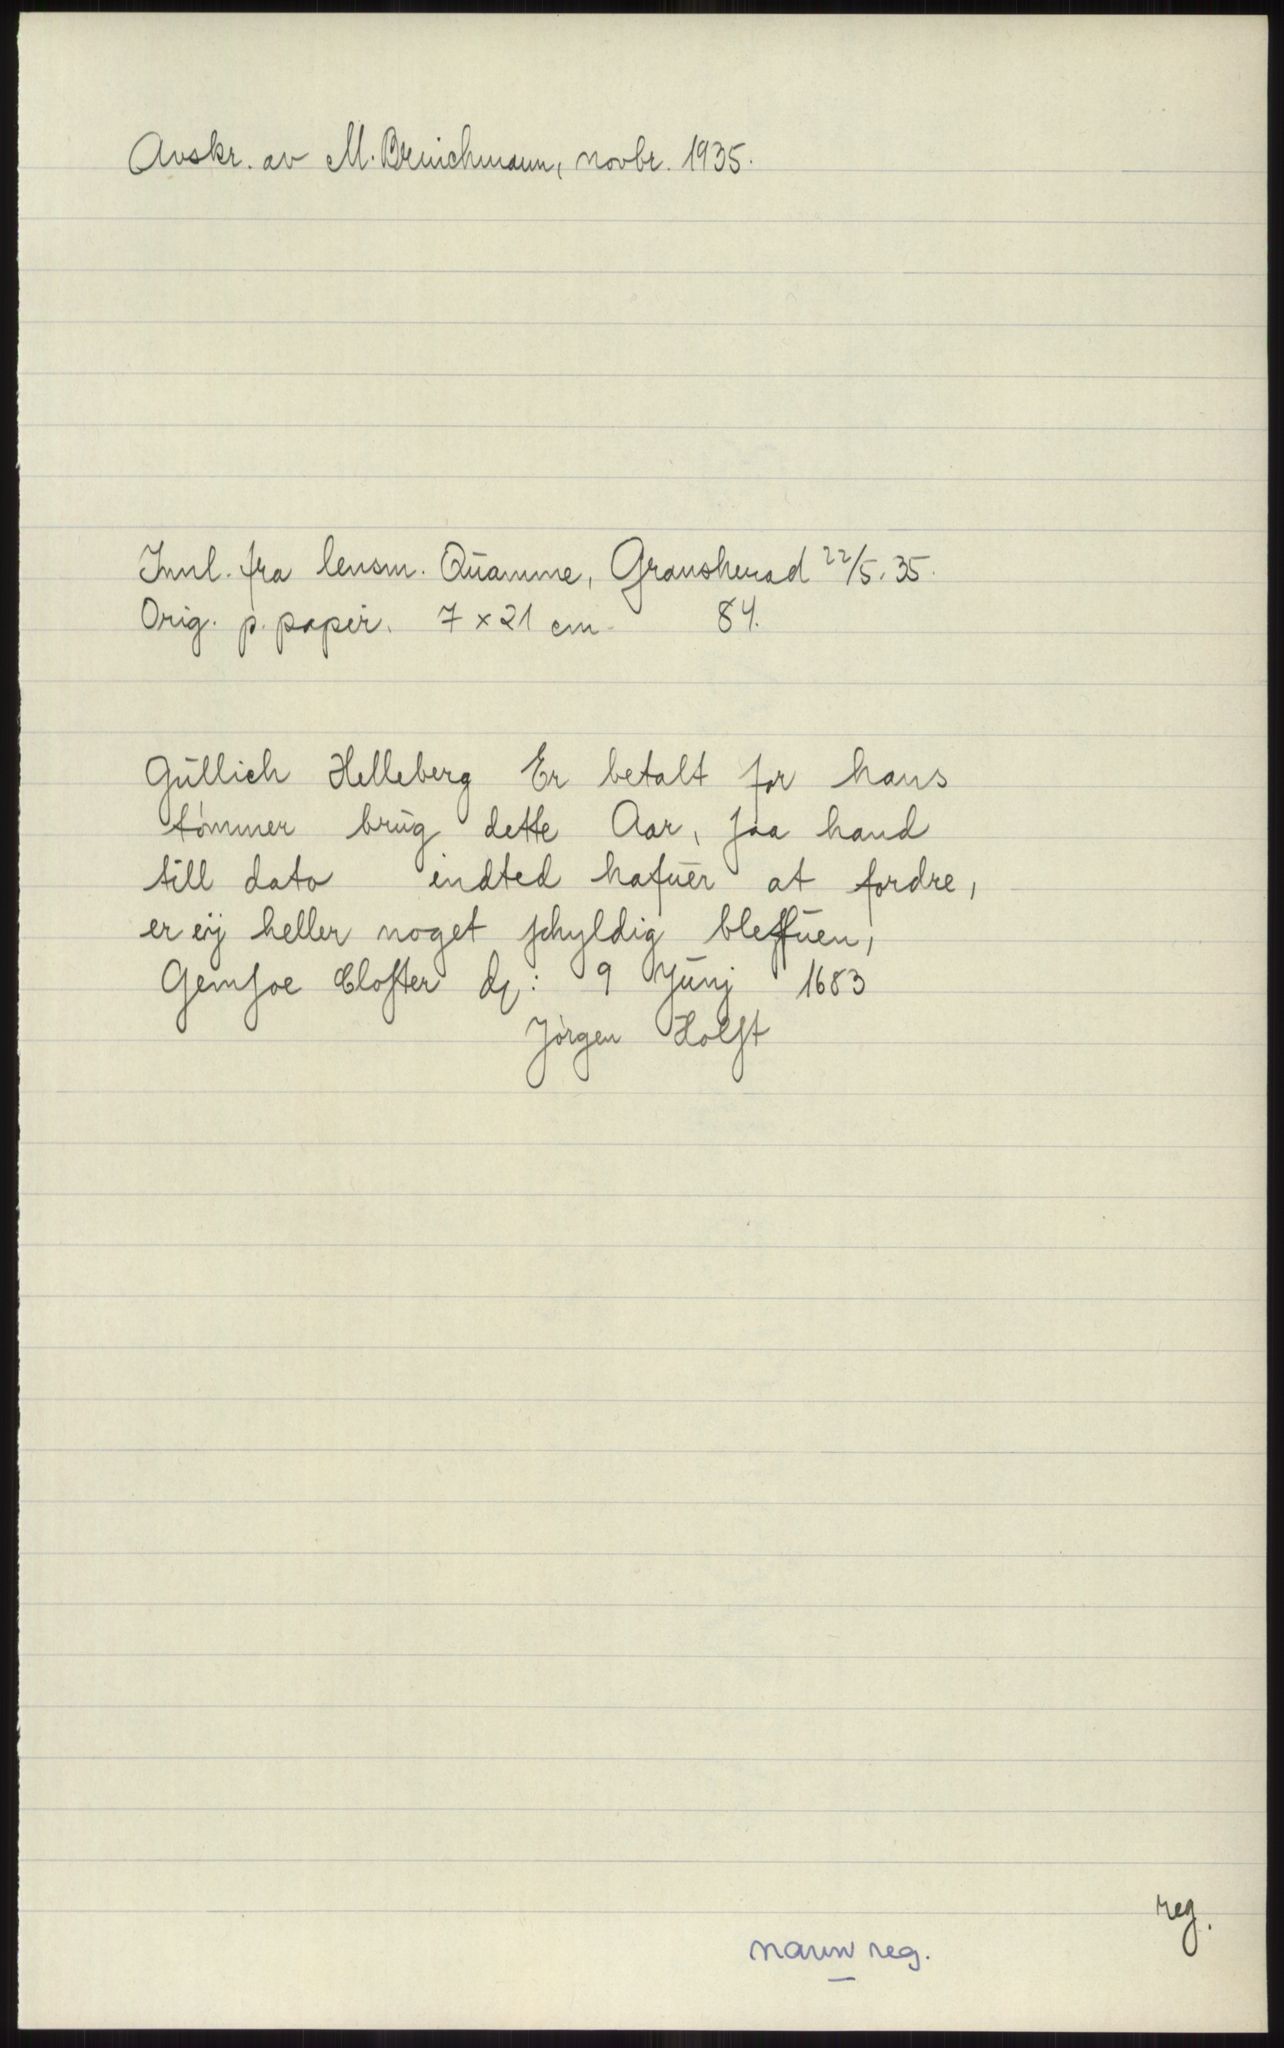 Avskr. av M. Brinichmann, novbr. 1935.
Innl. fra lensm. Qŭamme, Gransherad 22/5. 35.
Orig. p. papir. 7 x 21 cm. 84.
Gŭllich Helleberg Er betalt for hans
tømmer brŭg dette Aar, ſaa hand
till dato indted hafŭer at fordre,
er eÿ heller noget ſchyldig bleffŭen,
Gemſoe Cloſter dɟ: 9 Jŭnj 1683
Jörgen Holſt
reg.
navn reg.